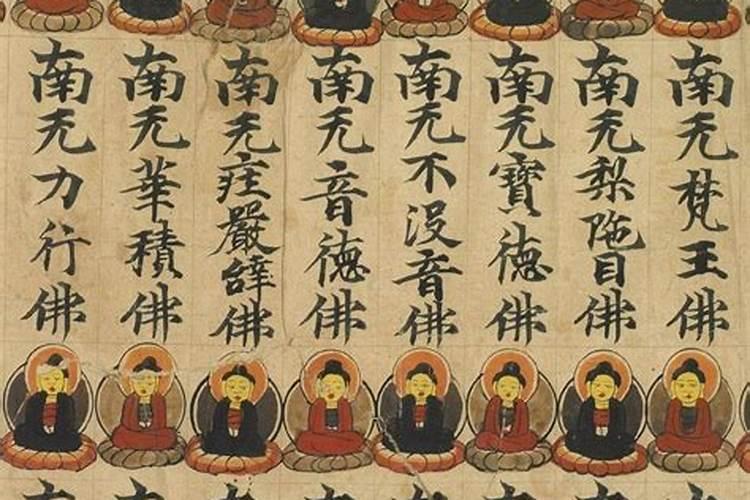 南无梵王佛
南无梨陁目佛
南无寶德佛
南无不没音佛
南无音德佛
南无㽵嚴辝佛
南无華積佛
南无力行佛